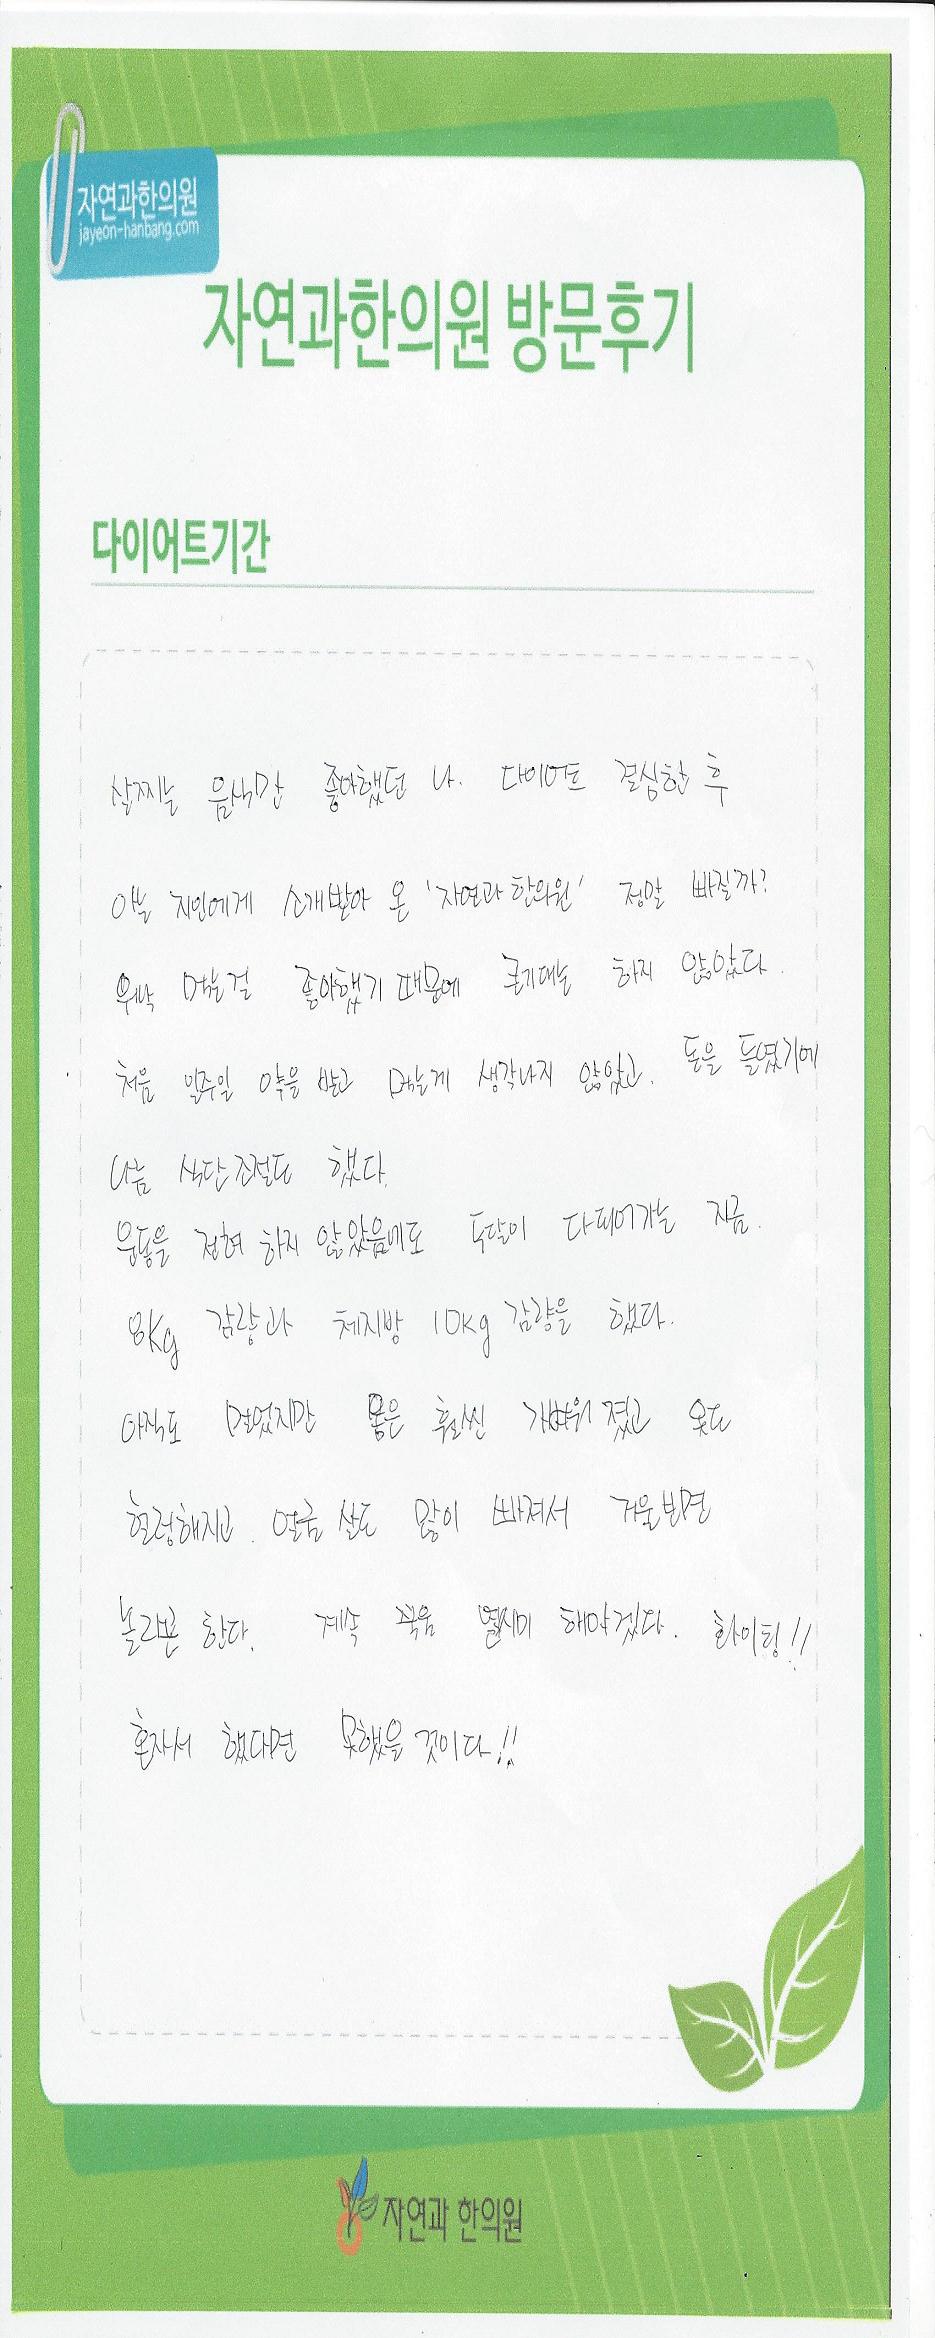 자연과한의원
jayeon-hanbang.com
자연과한의원 방문후기
다이어트기간
살찌는 음식만 좋아했던 나. 다이어트 결심한 후
아는 지인에게 소개받아 온 '자연과한의원' 정말 빠질까?
워낙 먹는걸 좋아했기 때문에 큰기대는 하지 않았다.
처음 일주일 약을 받고 먹는게 생각나지 않았고. 돈을 들였기에
나름 식단조절도 했다.
운동을 전혀 하지 않았음에도 두달이 다되어가는 지금.
8kg 감량과 체지방 10kg 감량을 했다.
아직도 멀었지만 몸은 훨씬 가벼워 졌고 옷도
헐렁해지고. 얼굴 살도 많이 빠져서 거울보면
놀라곤 한다. 계속 쭉 열심히 해야겠다. 화이팅!!
혼자서 했다면 못했을 것이다!!
자연과 한의원